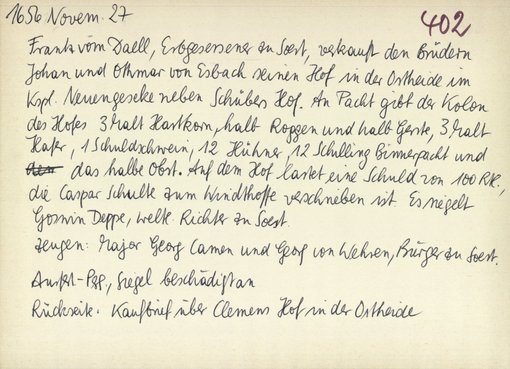 1656 Novem. 27
402
Frank vom Daell, Erbgesessener zu Soest, verkauft den Brüdern
Johan und Othmar von Esbach seinen Hof in der Ostheide im
Kspl. Neuengeseke neben Schübers Hof. An Pacht gibt der Kolon
des Hofes 3 Malt Hartkorn, halb Roggen und halb Gerste, 3 Malt
Hafer, 1 Schuldschwein, 12 Hühner, 12 Schilling Binnerpacht und
das halbe Obst. Auf dem Hof lastet eine Schuld von 100 Rtl.,
die Caspar Schulte zum Windthoffe verschrieben ist. Es siegelt
Goswin Deppe, weltl. Richter zu Soest.
Zeugen: Major Georg Camen und Georg von Wehren, Bürger zu Soest.
Ausfert.-Pgt., Siegel beschädigt an
Rückseite: Kaufbrief über Clemens Hof in der Ostheide